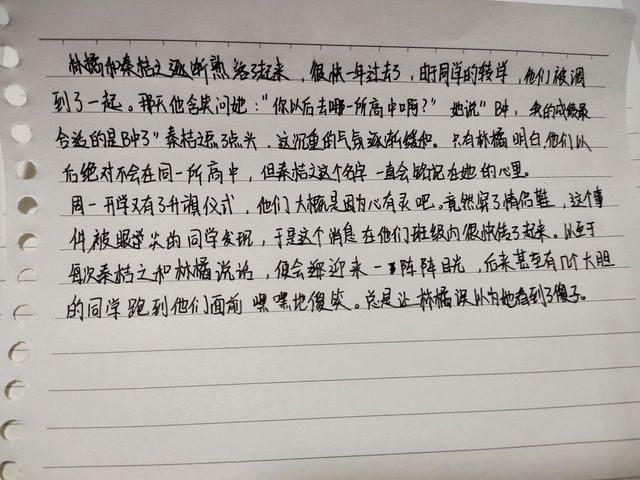 林橘和秦桔之逐渐熟络了起来，很快一年过去了，由于同学的转学，他们被调
到了一起。那天他含笑问她："你以后去哪一所高中啊？" 她说"B中，我的成绩最
合适的是B中了"秦桔之点点头，这沉重的气氛逐渐缓和。只有林橘明白，他们以
后绝对不会在同一所高中，但秦桔之这个名字一直会铭记在她的心里。
周一开学又有了升旗仪式，他们大概是因为心有灵吧。竟然穿了情侣鞋，这个事
件被眼逆尖的同学发现，于是这个消息在他们班级内很快传了起来。以至于
每次秦桔之和林橘说话，便会迎来一阵阵目光，后来甚至有几个大胆
的同学跑到他们面前嘿嘿地傻笑。总是让林橘误以为她看到了傻子。